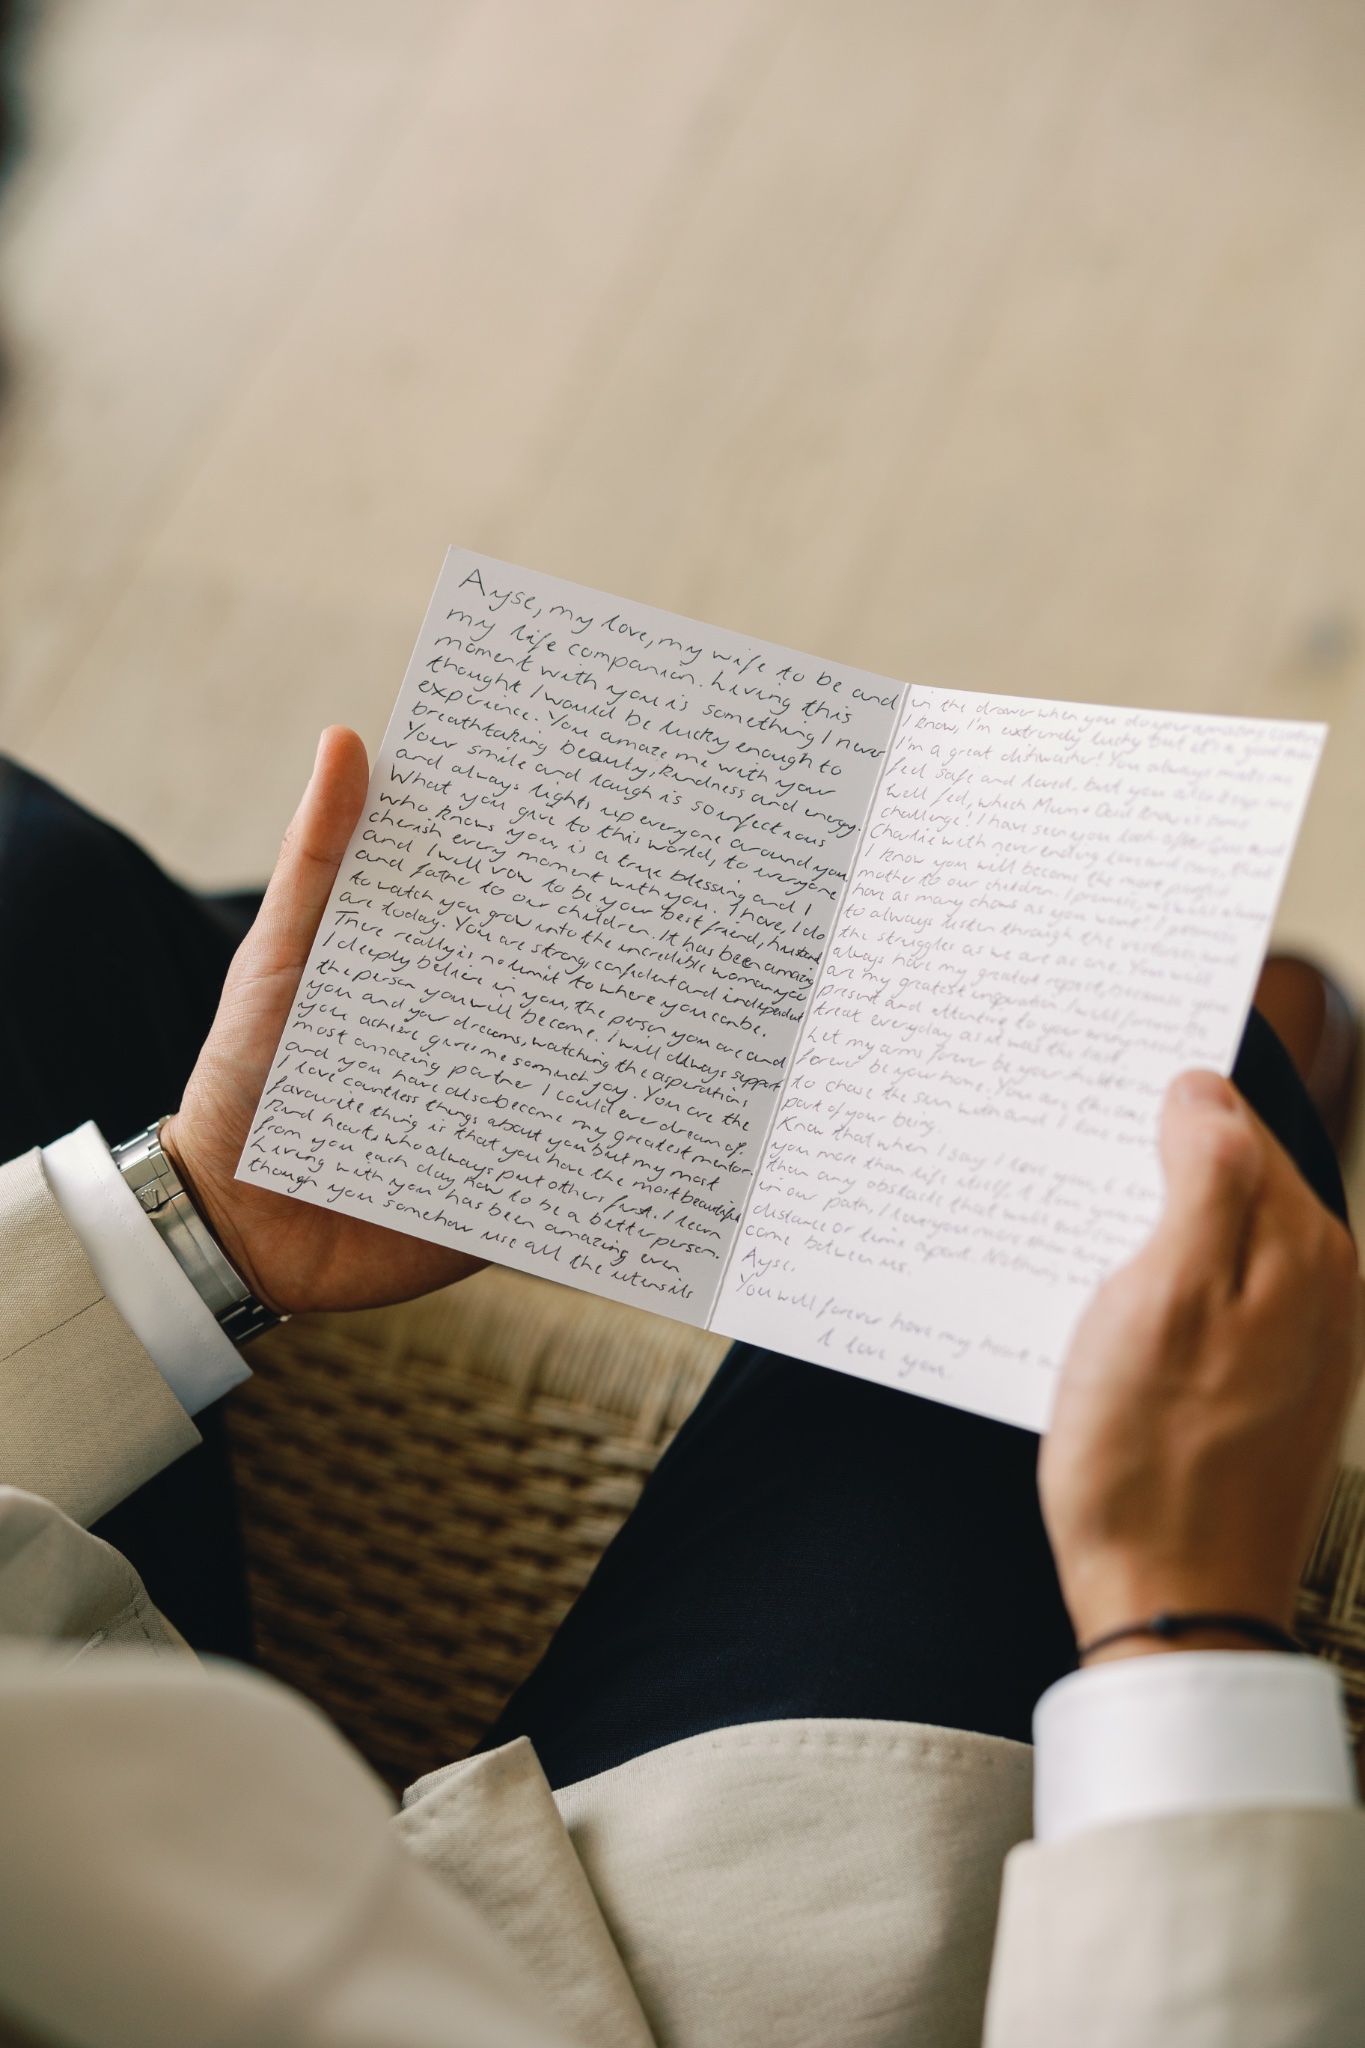 Ayse, my love, my wife to be and
my life companion. Living this
moment with you is something I never
thought I would be lucky enough to
experience. You amaze me with your
breathtaking beauty, kindness and energy.
Your smile and laugh is so infectious
and always lights up everyone around you.
What you give to this world, to everyone
who knows you, is a true blessing and I
cherish every moment with you. I have, I do
and I will vow to be your best friend, husband
and father to our children. It has been amazing
to watch you grow into the incredible woman you
are today. You are strong, confident and independent
There really is no limit to where you can be.
I deeply believe in you, the person you are and
the person you will become. I will always support
you and your dreams, watching the aspirations
you achieve gives me so much joy. You are the
most amazing partner I could ever dream of
and you have also become my greatest mentor.
I love countless things about you but my most
favourite thing is that you have the most beautiful
kind heart, who always put others first. I learn
from you each day how to be a better person.
Living with you has been amazing even
though you somehow use all the utensils
in the drawer when you do your amazing
I know, I'm extremely lucky but it's a good thing
I'm a great dishwasher! You always make me
feel safe and loved, but you also keep me
well fed, which Mum + Dad know is some
challenge! I have seen you look after
Charlie with never ending love and care
I know you will become the most perfect
mother to our children. I promise, we will always
have as many chows as you want. I promise
to always listen through the
the struggles as we are as one. You will
always have my greatest respect, because you
are my greatest inspiration. I will forever be
present and attentive to your every need, and
treat everyday as it was the last.
Let my arms forever be your shelter
forever be your home. You are the
to chase the sun with and I love every
part of your being.
Know that when I say I love you, I
you more than life itself, I love you
than any obstacle that will
in our path, I love you more than any
distance or time apart. Nothing will
come between us.
Ayse,
You will forever have my heart
I love you.